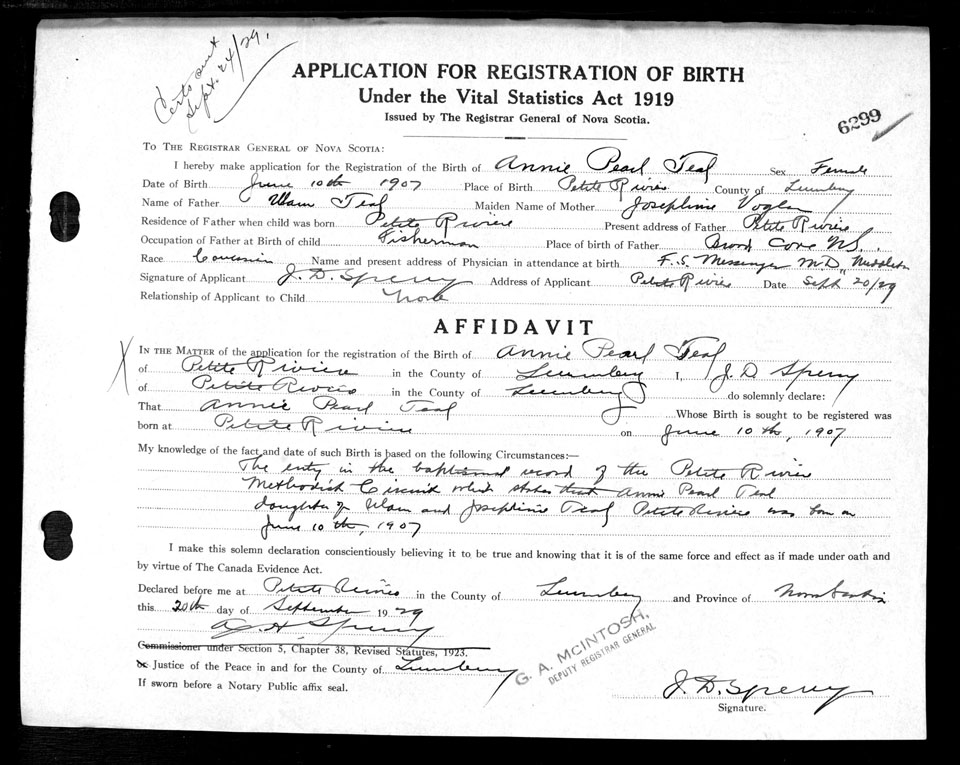 Certs sent
Sept. 24/29.
APPLICATION FOR REGISTRATION OF BIRTH
Under the Vital Statistics Act 1919
Issued by The Registrar General of Nova Scotia.
6299
TO THE REGISTRAR GENERAL OF NOVA SCOTIA:
I hereby make application for the Registration of the Birth of Annie Pearl Teal Sex Female
Date of Birth June 10th 1907 Place of Birth Petite Riviere County of Lunenburg
Name of Father Teal Maiden Name of Mother Josephine Vogler
Residence of Father when child was born Petite Riviere Present address of Father Petite Riviere
Occupation of Father at Birth of child Fisherman Place of birth of Father Broad Cove N.S.
Race Caucasian Name and present address of Physician in attendance at birth F. S. Messenger M.D., Middleton
Signature of Applicant J. D. Sperry Address of Applicant Petite Riviere Date Sept 20/29
Relationship of Applicant to Child None
AFFIDAVIT
X IN THE MATTER of the application for the registration of the Birth of Annie Pearl Teal
of Petite Riviere in the County of Lunenburg I, J. D. Sperry
of Petite Riviere in the County of Lunenburg do solemnly declare:
That Annie Pearl Teal Whose Birth is sought to be registered was
born at Petite Riviere on June 10th, 1907
My knowledge of the fact and date of such Birth is based on the following Circumstances:—
The entry in the baptismal record of the Petite Riviere
Methodist Circuit which states that Annie Pearl Teal
daughter of and Josephine Teal Petite Riviere was born on
June 10th, 1907
I make this solemn declaration conscientiously believing it to be true and knowing that it is of the same force and effect as if made under oath and
by virtue of The Canada Evidence Act.
Declared before me at Petite Riviere in the County of Lunenburg and Province of Nova Scotia
this 20th day of September 1929
H. Sperry
Commissioner under Section 5, Chapter 38, Revised Statutes, 1923.
or Justice of the Peace in and for the County of Lunenburg
If sworn before a Notary Public affix seal.
G. A. MCINTOSH,
DEPUTY REGISTRAR GENERAL
J. D. Sperry
Signature.